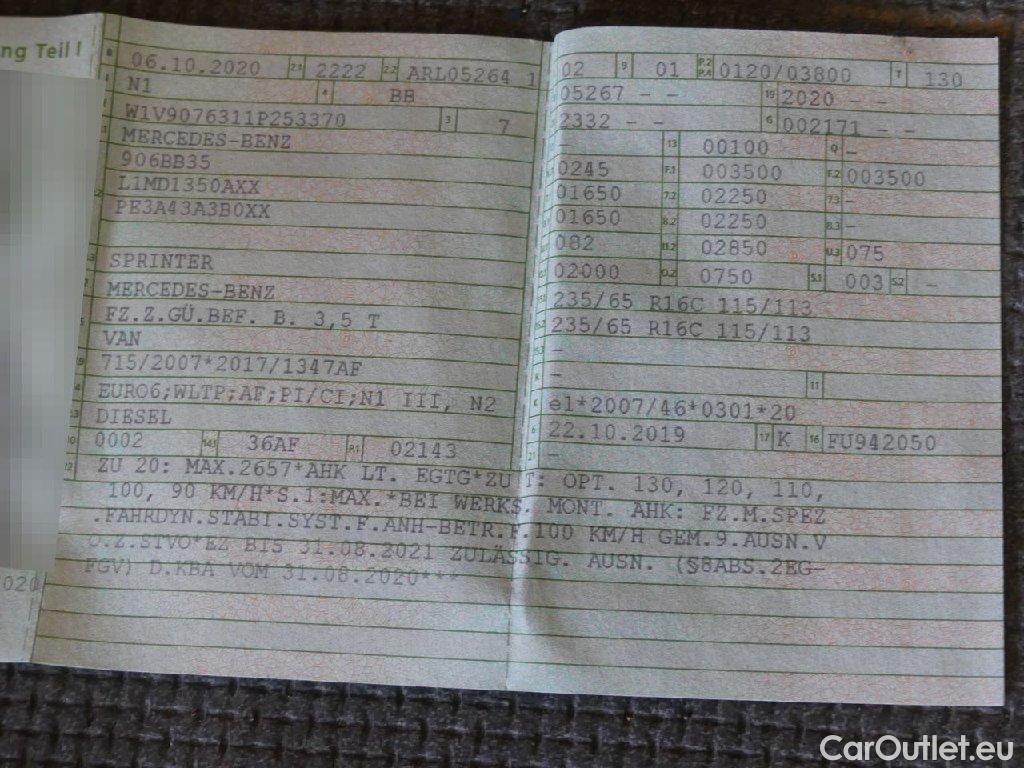 ng Teil I
B 06.10.2020 2.1 2222 2.2 ARL05264 1
N1 4 BB
W1V9076311P253370 3 7
MERCEDES-BENZ
906BB35
L1MD1350AXX
PE3A43A3B0XX
SPRINTER
MERCEDES-BENZ
FZ.Z.GÜ.BEF. B. 3,5 T
VAN
715/2007*2017/1347AF
EURO6;WLTP;AF;PI/CI;N1 III, N2
DIESEL
0002 14.1 36AF R1 02143
02 9 01 P.2 P.4 0120/03800 T 130
05267 - - 18 2020 - -
2332 - - G 002171 - -
13 00100 Q -
0245 F.1 003500 F.2 003500
01650 7.2 02250 7.3 -
01650 8.2 02250 8.3 -
082 U.2 02850 U.3 075
02000 O.2 0750 S.1 003 S.2 -
15.1 235/65 R16C 115/113
15.2 235/65 R16C 115/113
15.3 -
R - 11
K e1*2007/46*0301*20
6 22.10.2019 17 K 16 FU942050
21 -
ZU 20: MAX.2657*AHK LT. EGTG*ZU T: OPT. 130, 120, 110,
100, 90 KM/H*S.1:MAX.*BEI WERKS. MONT. AHK: FZ.M.SPEZ
.FAHRDYN.STABI.SYST.F.ANH-BETR.F.100 KM/H GEM.9.AUSN.V
O.Z.STVO*EZ BIS 31.08.2021 ZULÄSSIG. AUSN. (§8ABS.2EG-
FGV) D.KBA VOM 31.08.2020***
020
CarOutlet.eu